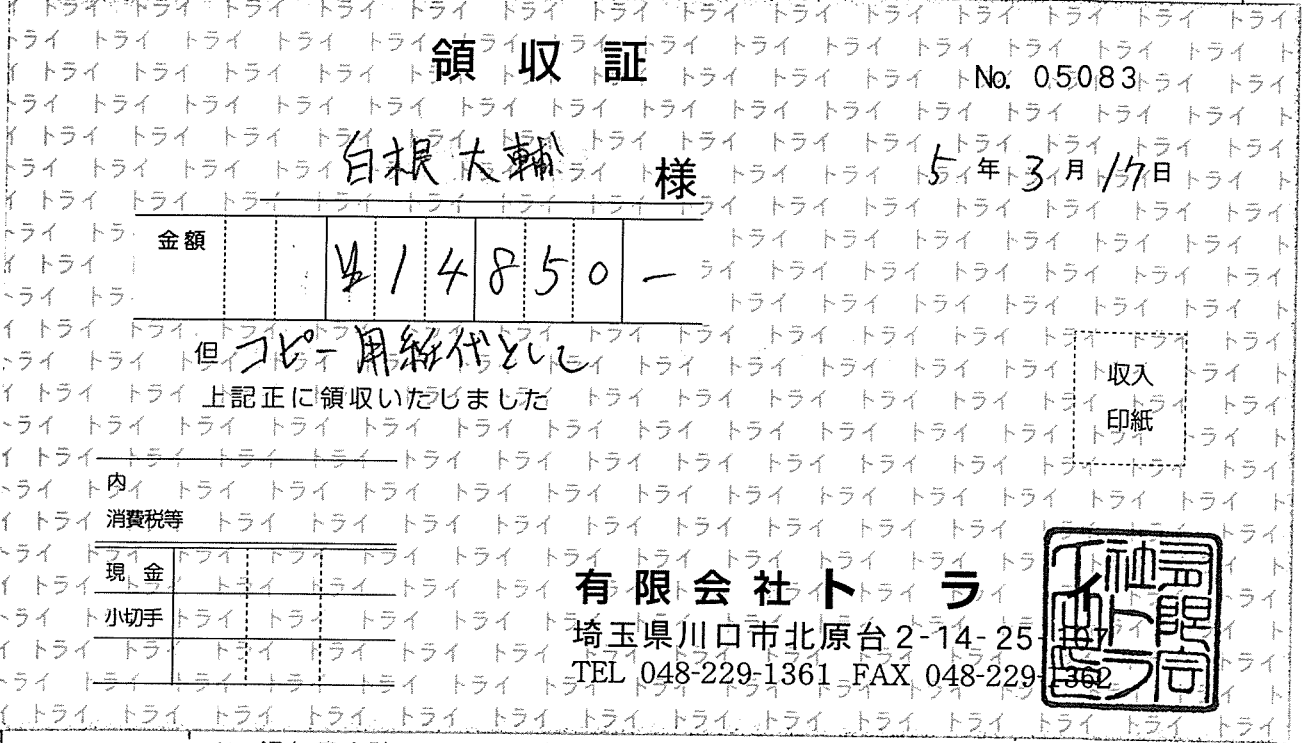 領収証
No. 05083
白根大輔 様
5年3月17日
金額 ¥14850-
但 コピー用紙代として
上記正に領収いたしました
収入
印紙
内
消費税等
現金
小切手
有限会社トライ
埼玉県川口市北原台2-14-25-107
TEL 048-229-1361 FAX 048-229-1362